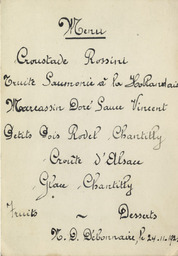 Menu
Croustade Rossini
Truite Saumonée à la Hollandaise
Marcassin Doré Sauce Vincent
Petits Pois Rodel Chantilly
Croûte d'Elsace
Glace Chantilly
Fruits ~ Desserts
N. D. Débonnaire, le 24.11.192